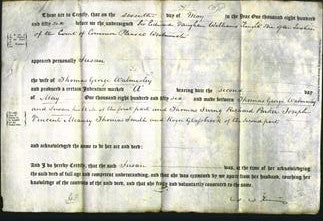 These are to Certify, that on the seventh day of May in the Year One thousand eight hundred
and fifty six before me the undersigned Sir Edward Vaughan Williams Knight One of the Justices
of the Court of Common Pleas at Westminster
appeared personally Susan
the wife of Thomas George Walmisley
and produced a certain Indenture marked A bearing date the second day
of May One thousand eight hundred and fifty six and made between Thomas George Walmisley
and Susan his wife of the first part and Thomas Richard Parker Joseph
Vincent Thomas Smith and of the second part
and acknowledged the same to be her act and deed:
And I do hereby certify, that the said Susan was, at the time of her acknowledging
the said deed of full age and competent understanding; and that she was examined by me apart from her husband, touching her
knowledge of the contents of the said deed, and that she freely and voluntarily consented to the same.